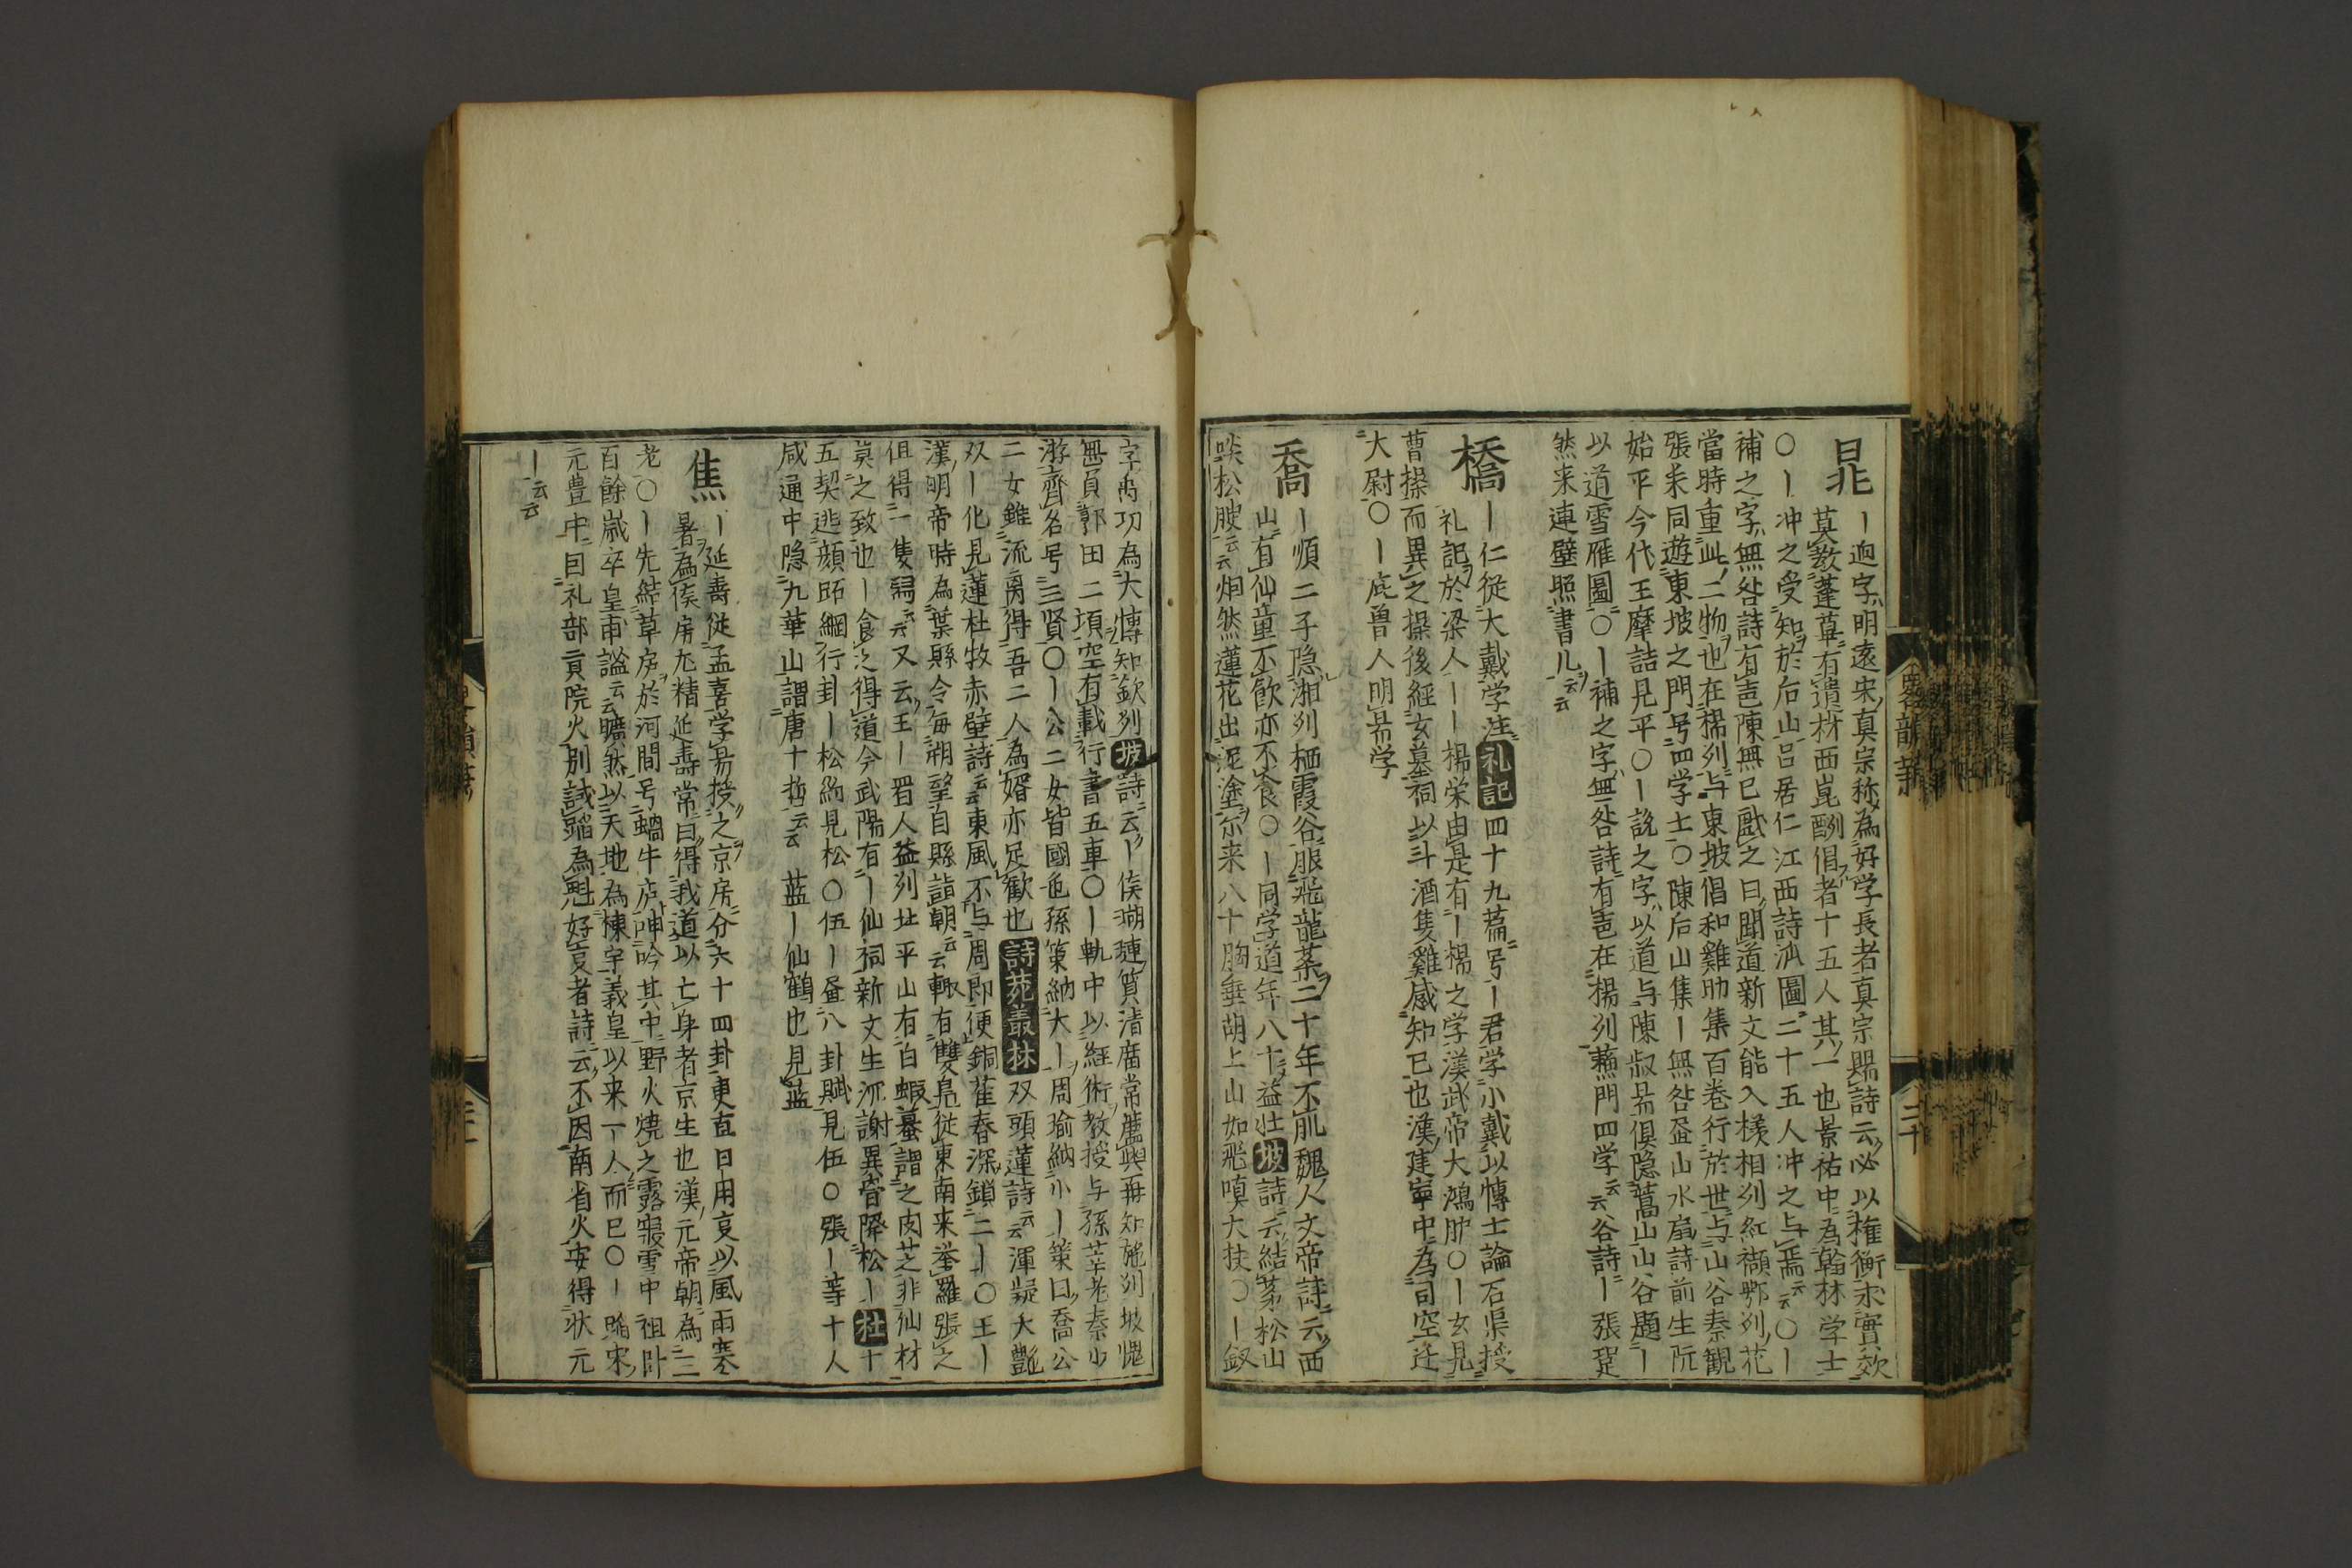 晁
ー迥字明遠宋真宗称為好学長者真宗賜詩云必以権衡求實效
莫教蓬蓽有遺材西崑酬倡者十五人其一也景祐中為翰林学士
〇ー冲之受知於后山呂居仁江西詩派圖二十五人冲之与焉云云〇ー
補之字無咎詩有邑陳無已戯之曰聞道新文能入様相列紅纈鄂列花
當時重此二物也在楊列与東坡倡和雞肋集百巻行於世与山谷秦観
張耒同遊東坡之門号四学士〇陳后山集ー無咎畫山水扇詩前生阮
始平今代王摩詰見平〇ー説之字以道与陳叔易倶隠嵩山山谷題ー
以道雪雁圖〇ー補之字無咎詩有邑在楊列蘓門四学云云谷詩ー張跫
然来連璧照書几云云
橋
ー仁従大戴学注礼記四十九篇号ー君学小戴以博士論石渠授
礼記於梁人ーー楊栄由是有ー楊之学漢武帝大鴻胪〇ー玄見
曹操而異之操後経玄墓祠以斗酒隻雞感知已也漢建寧中為司空迁
大尉〇ー庇魯人明易学
喬
ー順二子隠湘列栖霞谷服飛龍薬二十年不飢魏人文帝詩云西
山有仙童不飲亦不飡〇ー同学道年八十益壮坡詩云結茅松山
啖松腴云云炯然蓮花出泥塗尓来八十胸垂胡上山如飛嗔大扶〇ー釵
字禹功為大博知欽列坡詩云ー侯瑚璉質清庿常薦輿毎知施列坡愧
無負郭田二項空有載行書五車〇ー軌中以経術教授与孫莘老秦少
游齊名号三賢〇ー公二女皆國色孫策納大ー周瑜納小ー策曰喬公
二女雖流离得吾二人為婿亦足歓也詩苑叢林双頭蓮詩云云渾疑大艶
双ー化見蓮杜牧赤壁詩云云東風不与周郎便銅雀春深鎖二ー〇王ー
漢明帝時為葉縣令毎朔望自縣詣朝云云輒有雙鳧従東南来挙羅張之
俱得一隻舄云云又云王ー蜀人益列北平山有白蝦蟇謂之肉芝非仙材
莫之致也ー食之得道今武陽有ー仙祠新文生沠謝異皆降松ー杜十
五契逃顔師綱行卦ー松絢見松〇伍ー昼八卦賦見伍〇張ー等十人
咸通中隠九華山謂唐十哲云云　藍ー仙鶴也見藍
焦
ー延壽従孟喜学易授之京房分六十四卦更直日用亨以風雨寒
暑為侯房尤精延壽常曰得我道以亡身者京生也漢元帝朝為三
老〇ー先結草庐於河間号蝸牛庐呻吟其中野火燒之露寢雪中袒卧
百餘歳卒皇甫謐云云曠然以天地為棟宇義皇以来一人而已〇ー蹈宋
元豊中囙礼部貢院火別試蹈為魁好亨者詩云不因南省火安得状元
ー云云
二十